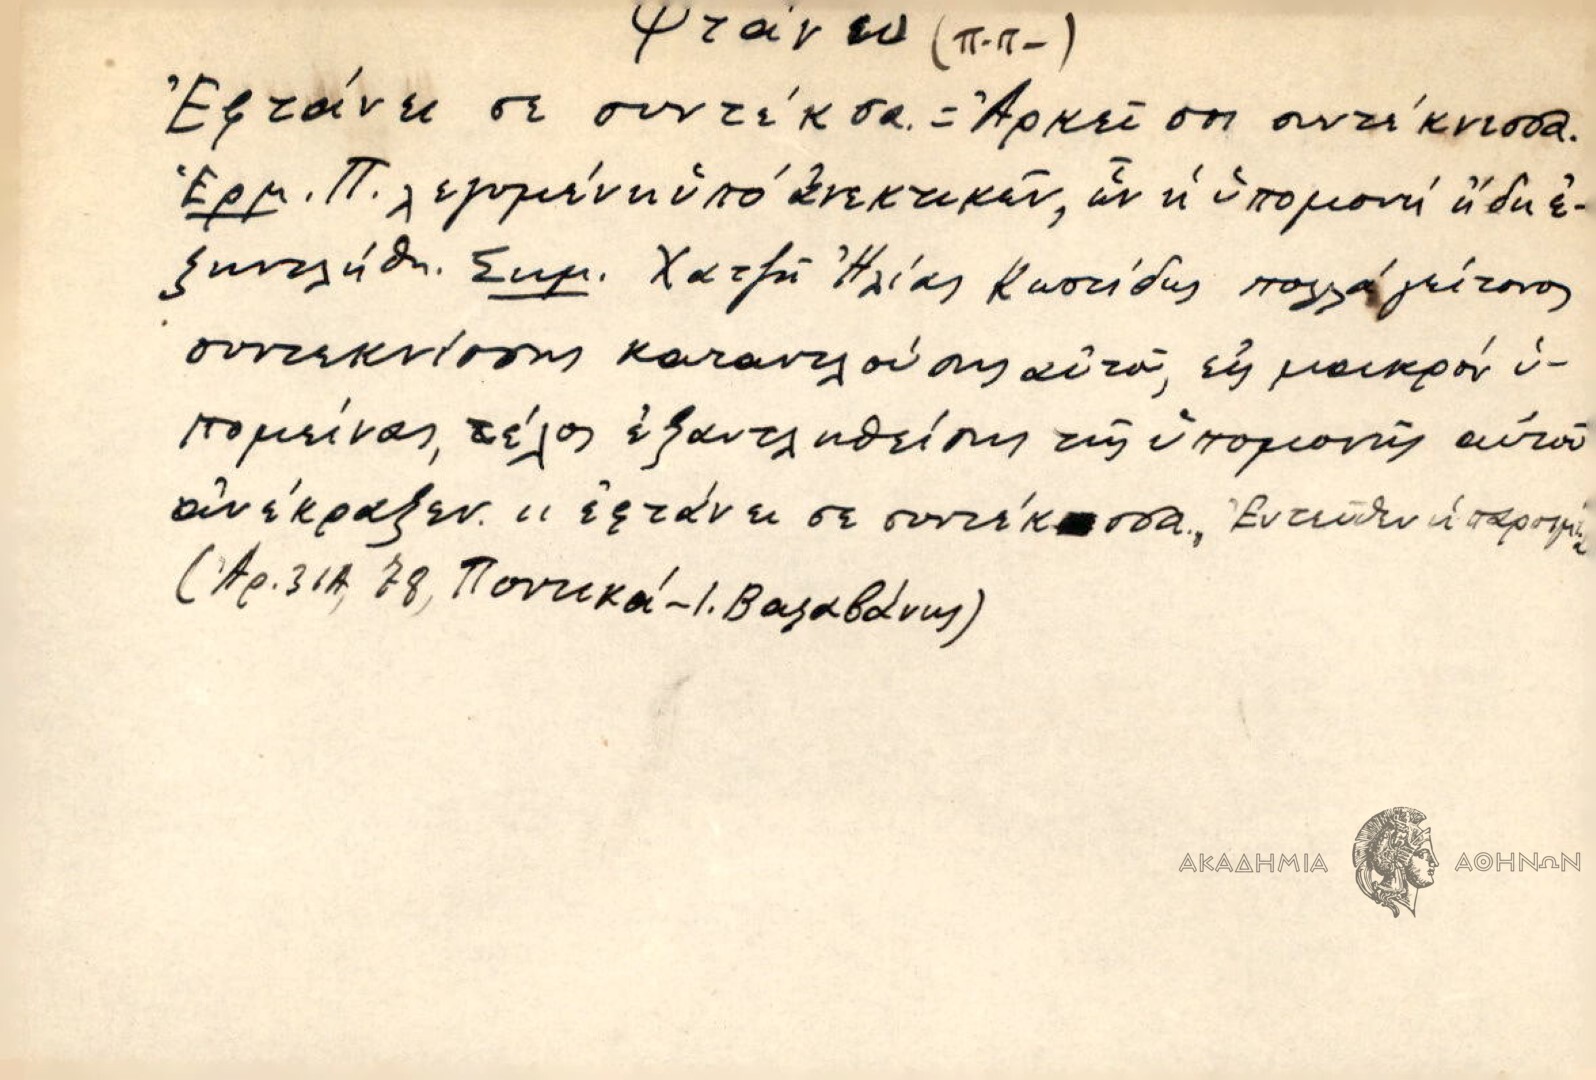 φτάνω (π.π-)
Ἐφτάνει σε συντέκσα. = Ἀρκεῖ σοι συντέκνισσα.
Ἑρμ. Π. λεγομένη ὑπό ἀνεκτικῶν, ὧν ἡ ὑπομονή ἤδη ἐ-
ξηντλήθη. Σημ. Χατζῆ Ἠλίας Κωστίδης πολλά γείτονος
συντεκνίσσης καταντλούσης αὐτοῦ, εἰς μακρόν ὑ-
πομείνας, τέλος ἐξαντληθείσης τῆς ὑπομονῆς αὐτοῦ
ἀνέκραξεν. " ἐφτάνει σε συντέκσσα., Ἐντεῦθεν ἡ παροιμία
(Ἀρ. 31Α, 78, Ποντικά - Ι. Βαλαβάνης)
ΑΚΑΔΗΜΙΑ ΑΘΗΝΩΝ